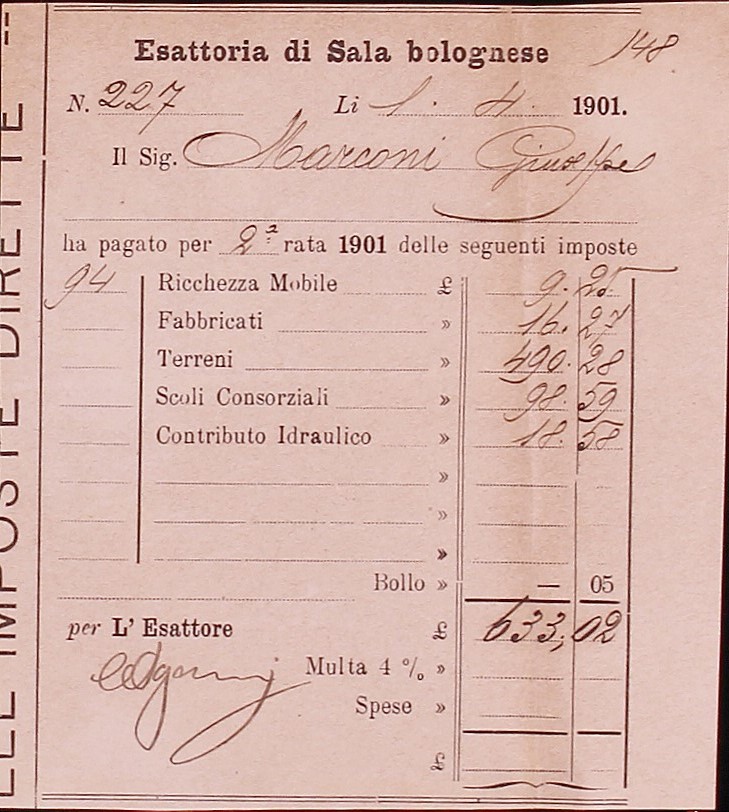 LLE IMPOSTE DIRETTE --
Esattoria di Sala bolognese 148
N. 227 Li 1. 4. 1901.
Il Sig. Marconi Giuseppe
ha pagato per 2ª rata 1901 delle seguenti imposte
94 Ricchezza Mobile £ 9. 25
Fabbricati » 16. 27
Terreni » 490. 28
Scoli Consorziali » 98. 59
Contributo Idraulico » 18. 58
»
»
»
Bollo » — 05
per L' Esattore £ 633, 02
Multa 4 % »
Spese »
£